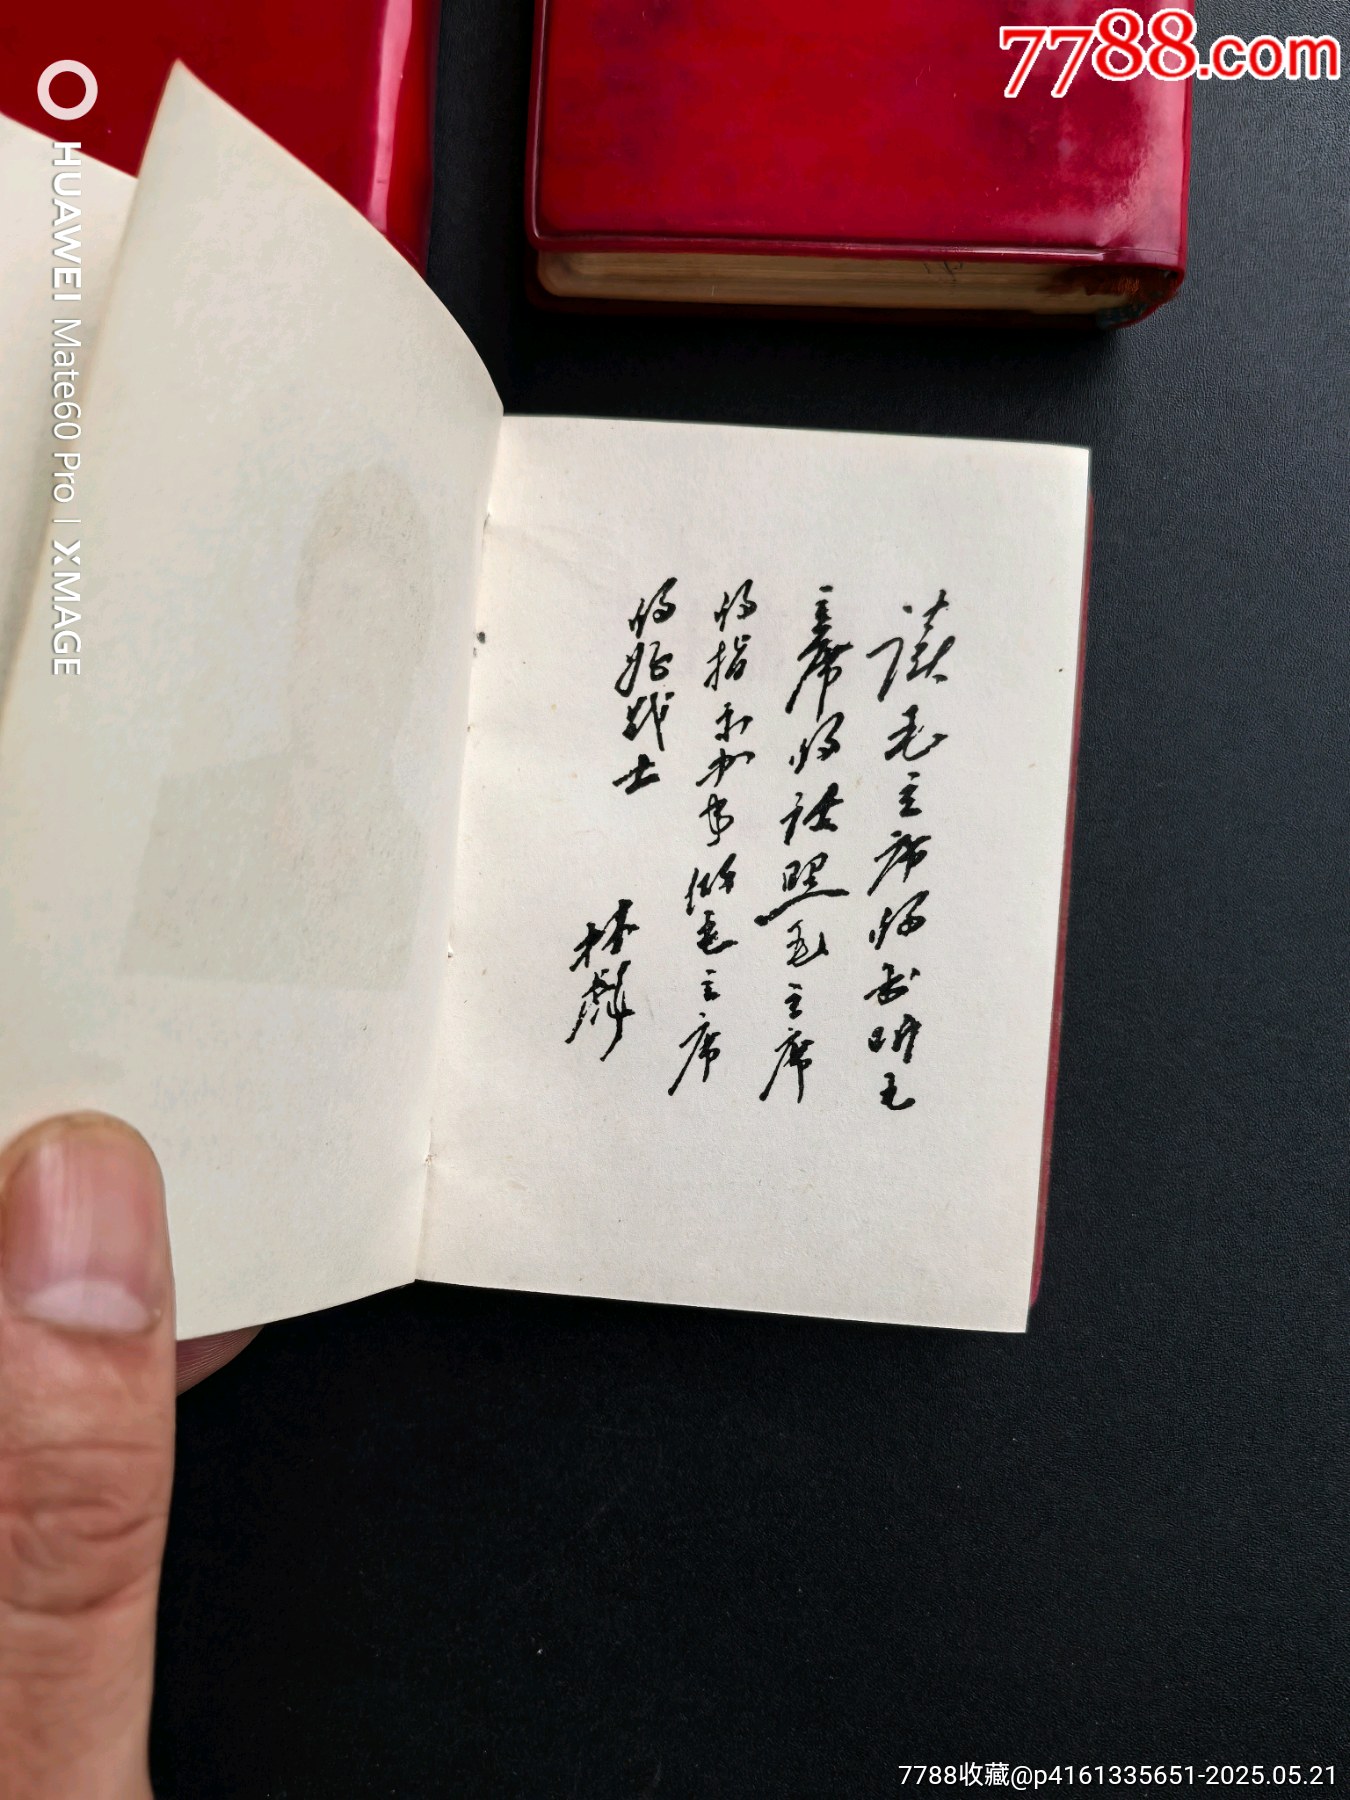 7788.com
HUAWEI Mate60 Pro | XMAGE
读毛主席的书听毛
主席的话照毛主席
的指示办事做毛主席
的好战士
林彪
7788收藏@p4161335651-2025.05.21